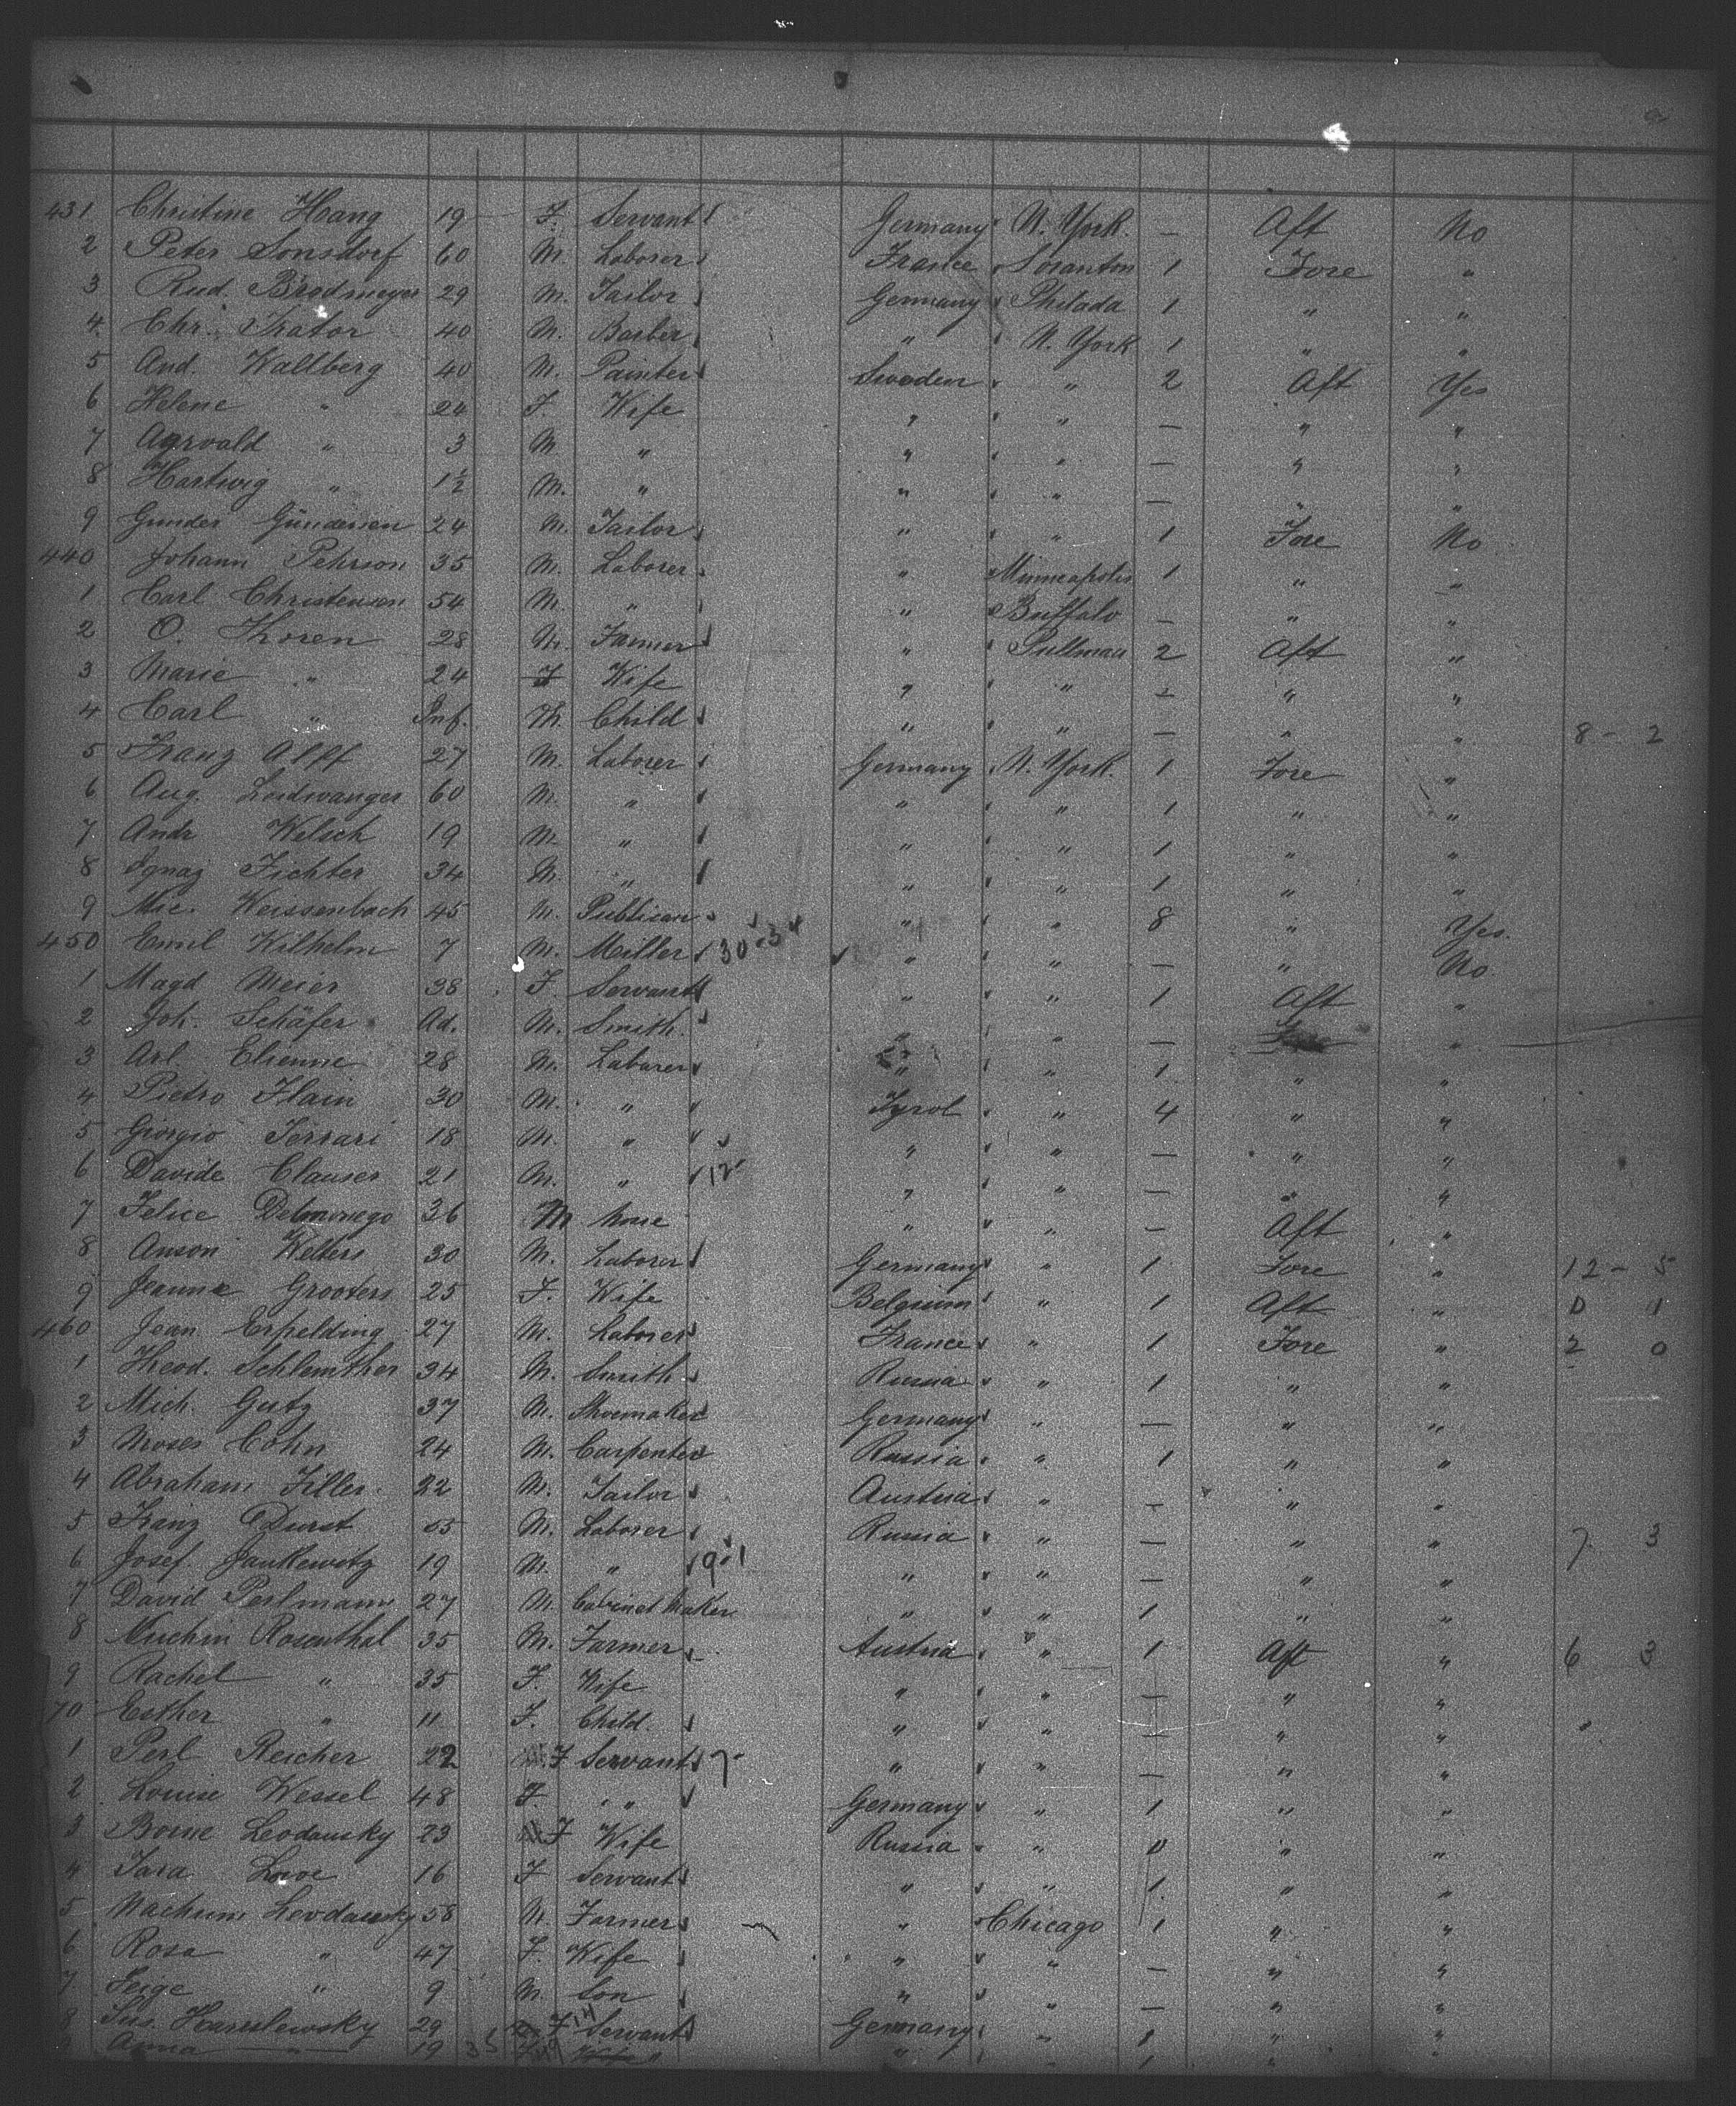 431 Christine Haug 19 F. Servant Germany N. York. — Aft No
2 Peter Sonsdorf 60 M. Laborer France Scranton 1 Fore "
3 Rud. Brodmeyer 29 M. Tailor Germany Philada 1 " "
4 Chr. Trator 40 M. Barber " N. York 1 " "
5 And. Wallberg 40 M. Painter Sweden " 2 Aft Yes
6 Helene " 24 F. Wife " " — " "
7 " 3 M " " " — " "
8 Hartwig " 1½ M. " " " — " "
9 Gunder Gündersen 24 M. Tailor " " 1 Fore No
440 Johann Pehrson 35 M. Laborer " Minneapolis 1 " "
1 Carl Christensen 54 M. " " Buffalo — " "
2 O. Thoren 28 M. Farmer " Pullman 2 Aft "
3 Marie " 24 F Wife " " — " "
4 Carl " Inf. M. Child " " — " " 8 - 2
5 Franz Alff 27 M. Laborer Germany N. York. 1 Fore "
6 Aug. Loidwanger 60 M. " " " 1 " "
7 Andr Welsch 19 M. " " " 1 " "
8 Ignaz Fichter 34 M. " " " 1 " "
9 Mic. Weissenbach 45 M. Publican " " 8 " Yes.
450 Emil Wilhelm 7 M. Miller 30-34 " " — " No
1 Magd Meier 38 F. Servant " " 1 Aft "
2 Joh. Schäfer Ad. M. Smith. " " — "
3 Etienne 28 M. Laborer " " 1 " "
4 Pietro Flain 30 M. " Tyrol " 4 " "
5 Giorgio Ferrari 18 M. " " " — " "
6 Davide Clauser 21 M. " 12 " " — " "
7 Felice Delmonego 36 M none " " — Aft "
8 Anson Welters 30 M. Laborer Germany " 1 Fore " 12 - 5
9 Jeanne Grooters 25 F. Wife Belgium " 1 Aft " 0 1
460 Jean Erpelding 27 M. Laborer France " 1 Fore " 2 0
1 Theod. Schlemther 34 M. Smith Russia " 1 " "
2 Mich. Gutz 37 M. Shoemaker Germany " — " "
3 Moses Cohn 24 M. Carpenter Russia " 1 " "
4 Abraham Filler 22 M. Tailor Austria " — " "
5 Franz Durst M. Laborer Russia " — " " 7 3
6 Josef Jankewitz 19 M. " 9-1 " " — " "
7 David Perlmann 27 M. Cabinet Maker " " 1 " "
8 Nuchin Rosenthal 35 M. Farmer Austria " 1 Aft " 6 3
9 Rachel " 35 F. Wife " " — " "
70 Esther " 11 F. Child. " " — " "
1 Perl Reicher 22 F Servant 7- " " — " "
2 Louise Wessel 48 F. " Germany " 1 " "
3 Leodausky 23 F Wife Russia " 0 " "
4 Love 16 F Servant " " 1 " "
5 Nachum Levdausky 58 M. Farmer " Chicago 1 " "
6 Rosa " 47 F. Wife " " — " "
7 Feige " 9 M. Son " " — " "
8 Sus. Hanslewsky 29 F 14 Servant Germany " 1 " "
9 Anna " 19 35 F Wife " " " 1 " "